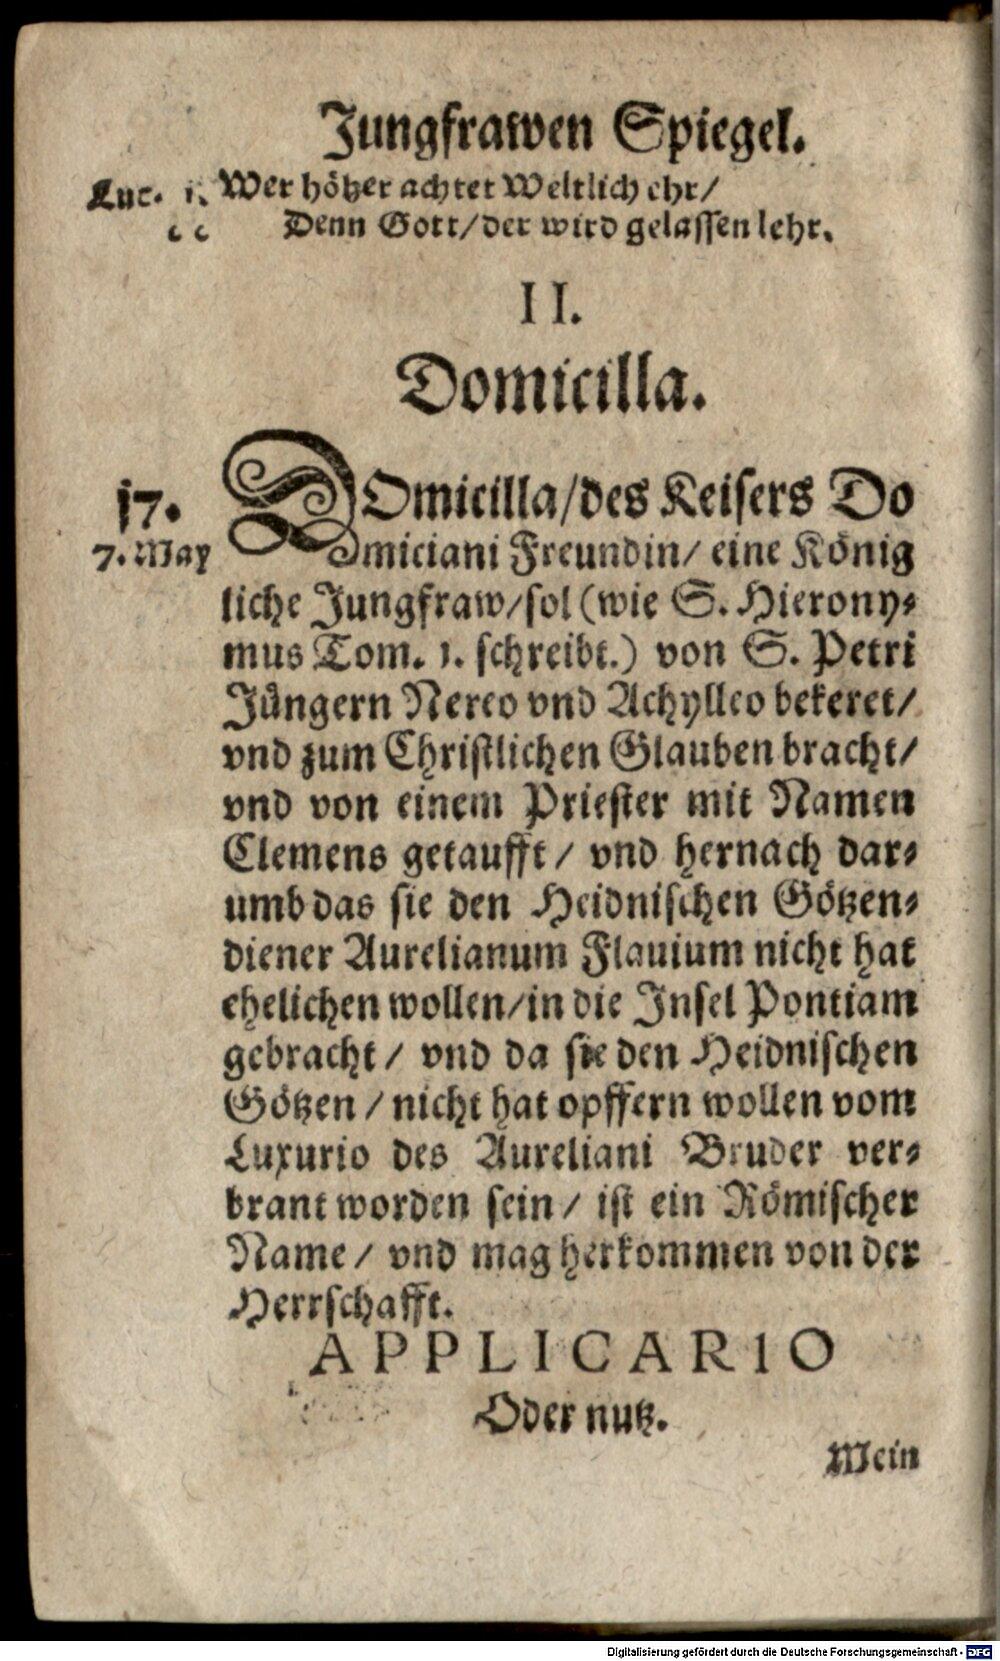 Jungfrawen Spiegel.
Luc. 1. Wer hötzer achtet Weltlich ehr/
c c Denn Gott/der wird gelassen lehr.
II.
Domicilla.
17. DOmicilla/des Keisers Do
7. May miciani Freundin/ eine König
liche Jungfraw/sol (wie S. Hierony-
mus Tom. 1. schreibt.) von S. Petri
Jüngern Nereo vnd Achylleo bekeret/
vnd zum Christlichen Glauben bracht/
vnd von einem Priester mit Namen
Clemens getaufft/ vnd hernach dar-
umb das sie den Heidnischen Götzen-
diener Aurelianum Flauium nicht hat
ehelichen wollen/in die Insel Pontiam
gebracht/ vnd da sie den Heidnischen
Götzen/ nicht hat opffern wollen vom
Luxurio des Aureliani Bruder ver-
brant worden sein/ ist ein Römischer
Name/ vnd mag herkommen von der
Herrschafft.
APPLICARIO
Oder nutz.
Mein
Digitalisierung gefördert durch die Deutsche Forschungsgemeinschaft - DFG